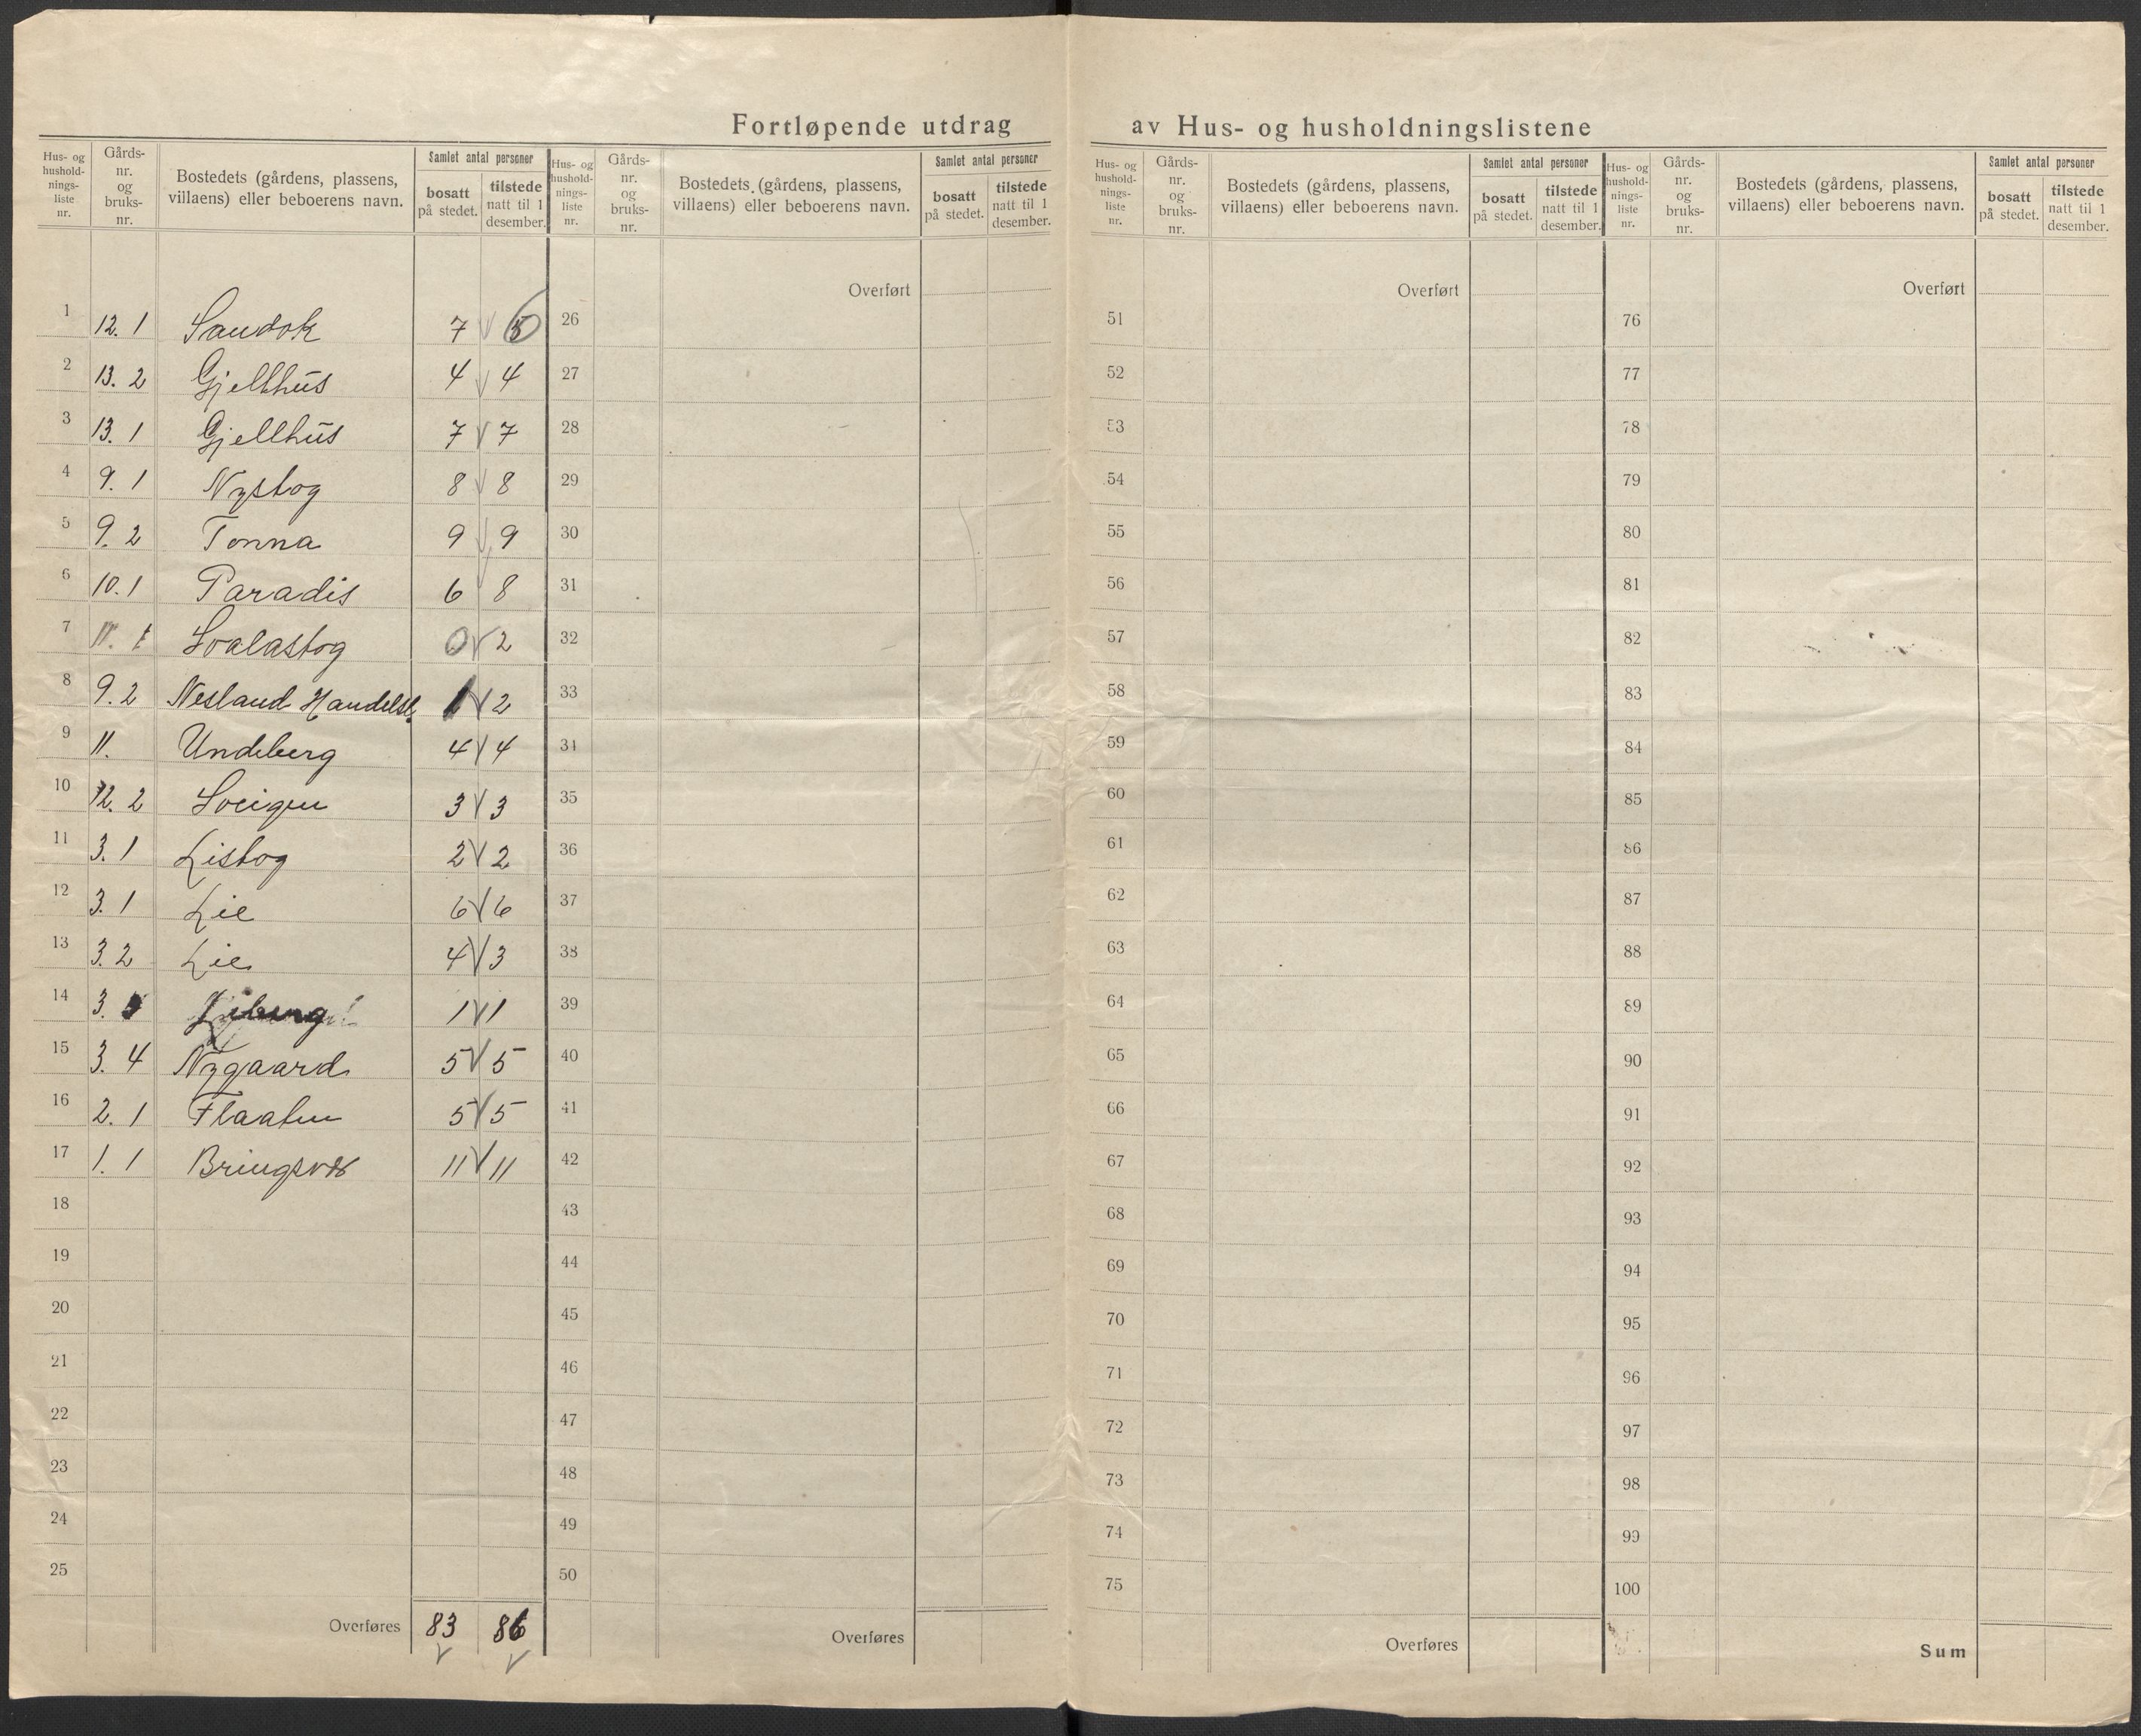 Fortløpende utdrag av Hus- og husholdningslistene
Hus- og hushold-nings-liste nr. | Gårds-nr. og bruks-nr. | Bostedets (gårdens, plassens, villaens) eller beboerens navn. | Samlet antal personer | bosatt på stedet. | tilstede natt til 1 desember.
Hus- og hushold-nings-liste nr. | Gårds-nr. og bruks-nr. | Bostedets (gårdens, plassens, villaens) eller beboerens navn. | Samlet antal personer | bosatt på stedet. | tilstede natt til 1 desember.
Hus- og hushold-nings-liste nr. | Gårds-nr. og bruks-nr. | Bostedets (gårdens, plassens, villaens) eller beboerens navn. | Samlet antal personer | bosatt på stedet. | tilstede natt til 1 desember.
Hus- og hushold-nings-liste nr. | Gårds-nr. og bruks-nr. | Bostedets (gårdens, plassens, villaens) eller beboerens navn. | Samlet antal personer | bosatt på stedet. | tilstede natt til 1 desember.
Overført Overført Overført
1 12. 1 Sandok 7 26 51 76
2 13. 2 Gjellhus 4 4 27 52 77
3 13. 1 Gjellhus 7 7 28 53 78
4 9. 1 Nystog 8 8 29 54 79
5 9. 2 Tonna 9 9 30 55 80
6 10. 1 Paradis 6 8 31 56 81
7 Svalastog 0 2 32 57 82
8 9. 2 Nesland Handelsl. 1 2 33 58 83
9 11. Undeberg 4 4 34 59 84
10 12. 2 Sveigen 3 3 35 60 85
11 3. 1 Listog 2 2 36 61 86
12 3. 1 Lie 6 6 37 62 87
13 3. 2 Lie 4 3 38 63 88
14 3. 1 1 39 64 89
15 3. 4 Nygaard 5 5 40 65 90
16 2. 1 Flaaten 5 5 41 66 91
17 1. 1 Bringsvæ 11 11 42 67 92
18 43 68 93
19 44 69 94
20 45 70 95
21 46 71 96
22 47 72 97
23 48 73 98
24 49 74 99
25 50 75 100
Overføres 83 86 Overføres Overføres Sum